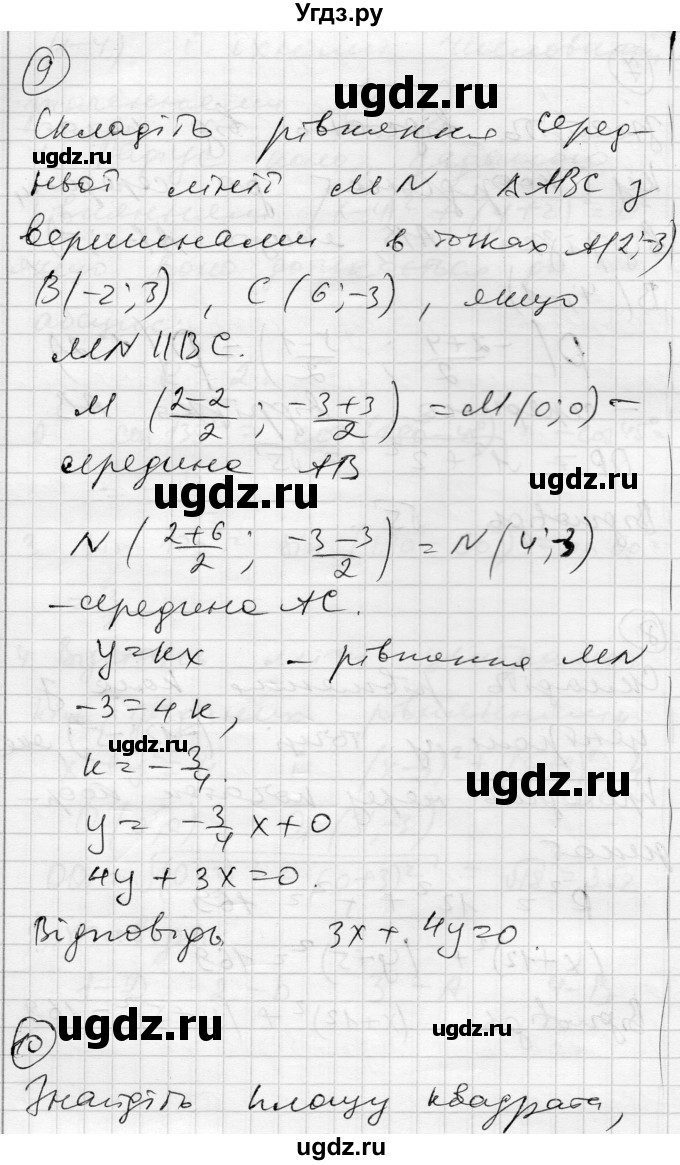 Угдз.ру
ugdz.ru
9
Складіть рівняння серед-
ugdz.ru
ньої лінії MN ΔABC з
вершинами в точках A(2;-3)
B(-2;3), C(6;-3), якщо
MN||BC.
M (2-2/2 ; -3+3/2) = M(0;0) -
середина AB
ugdz.ru
ugdz.ru
N (2+6/2 ; -3-3/2) = N(4;-3)
- середина AC.
y=kx - рівняння MN
-3=4k,
ugdz.ru
k=-3/4.
ugdz.ru
y= -3/4 x+0
4y+3x=0.
Відповідь 3x+4y=0.
ugdz.ru
ugdz.ru
10
Знайдіть площу квадрата,
ugdz.ru